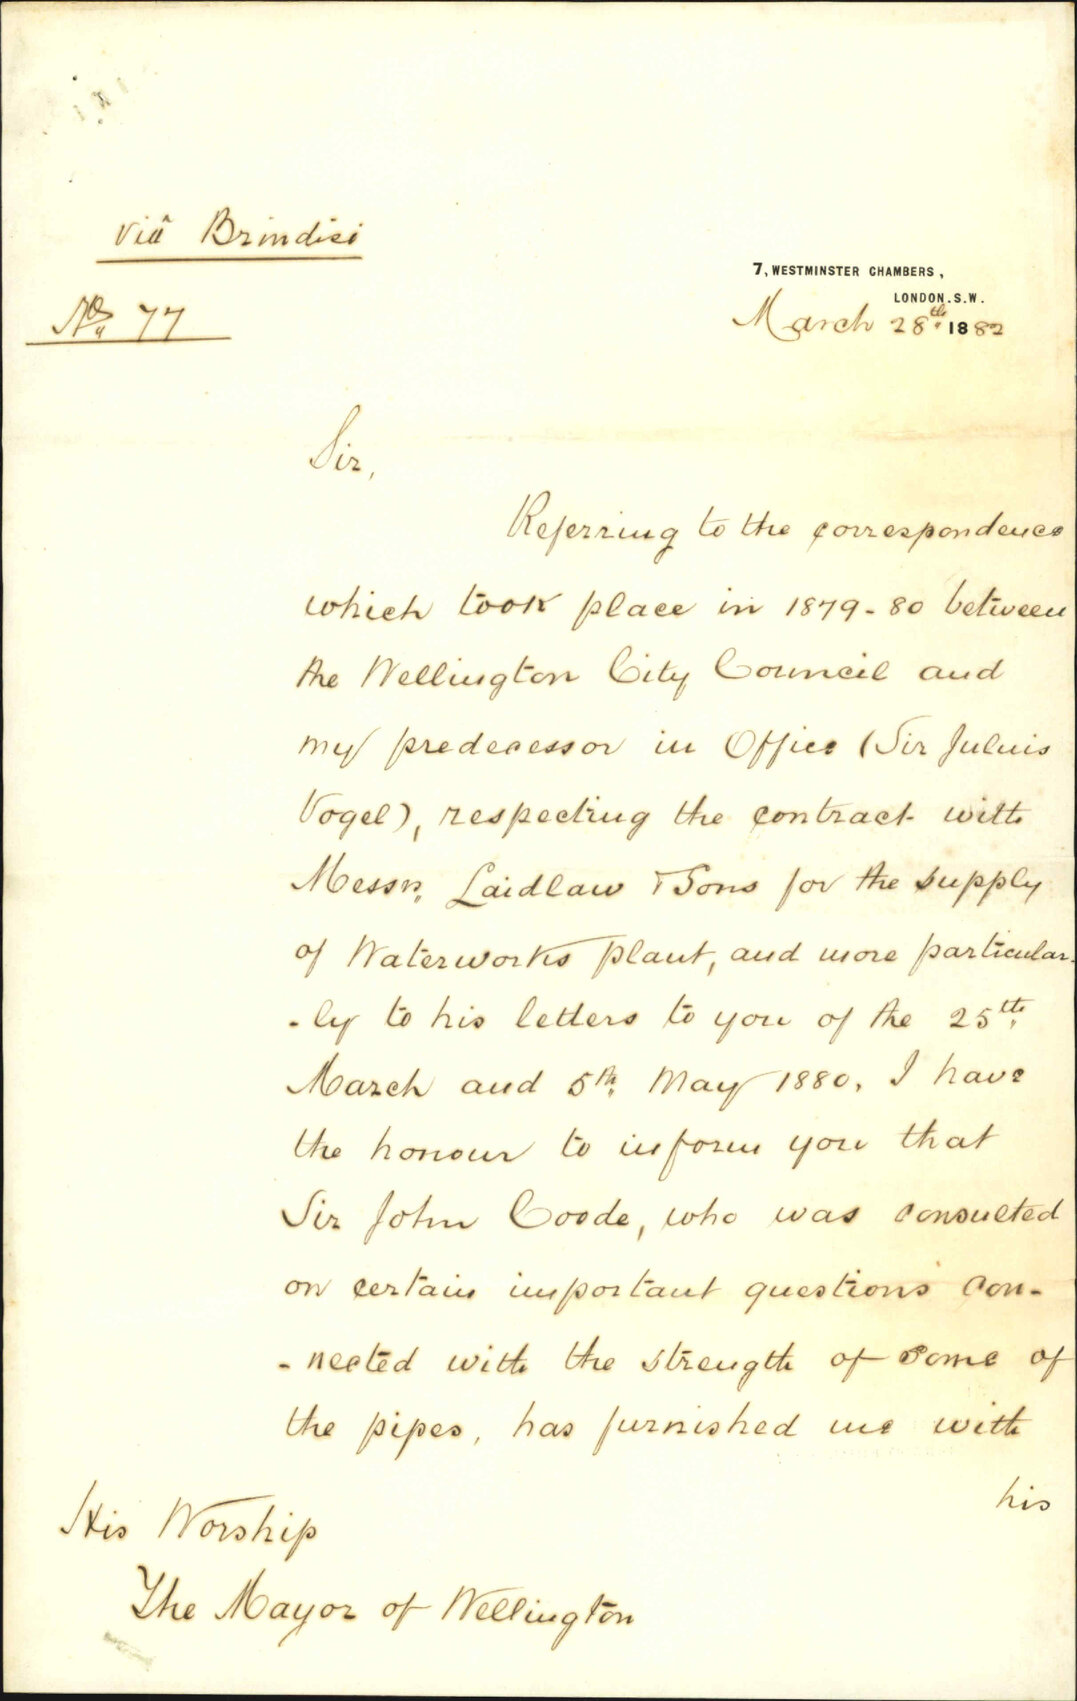 Viâ Brindisi
7, WESTMINSTER CHAMBERS,
LONDON. S.W.
No. 77
March 28th. 1882
Sir,
Referring to the correspondence
which took place in 1879-80 between
the Wellington City Council and
my predecessor in Office (Sir Julius
Vogel), respecting the contract with
Messrs. Laidlaw & Sons for the supply
of Waterworks plant, and more particular-
-ly to his letters to you of the 25th.
March and 5th. May 1880, I have
the honour to inform you that
Sir John Coode, who was consulted
on certain important questions con-
-nected with the strength of some of
the pipes, has furnished me with
his
His Worship
The Mayor of Wellington